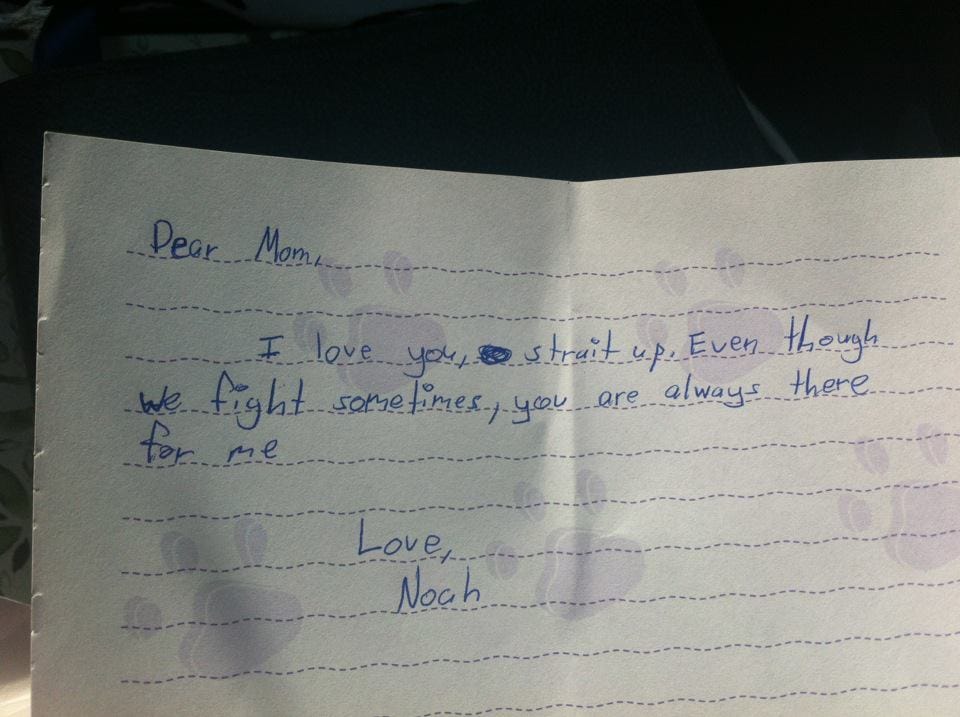 Dear Mom,
I love you, strait up. Even though
we fight sometimes, you are always there
for me
Love,
Noah